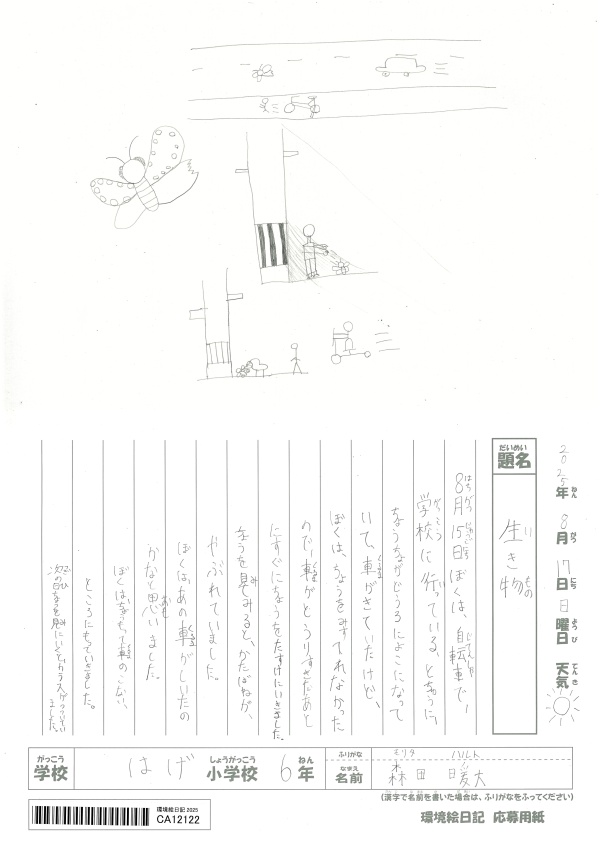 2025年ねん 8月がつ 17日にち 日曜日ようび 天気てんき
だいめい
題名
生き物
いもの
8月15日ぼくは、自転車で、
学校に行っている、とちゅうに、
ちょうちょがどうろによこになって
いて、車がきていたけど、
ぼくは、ちょうをみすてれなかった
ので、車がとうりすぎたあと
にすぐにちょうをたすけにいきました。
ちょうを見てみると、かたはねが、
やぶれていました。
ぼくは、あの車がしいたの
かなと思いました。
ぼくは、ちょうをもって車のこない、
ところにもっていきました。
次の日ちょうを見にいくと
いました。
がっこう
学校
はげ
しょうがっこう
小学校
6
ねん
年
ふりがな
モリタ ハルト
なまえ
名前
森田 暖大
(漢字で名前を書いた場合は、ふりがなをふってください)
環境絵日記 2025
CA12122
環境絵日記 応募用紙